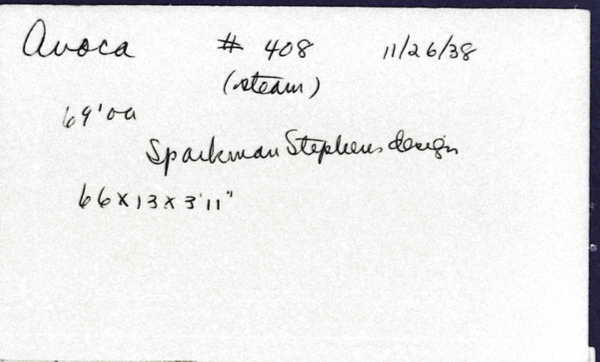 Avoca # 408 11/26/38
(steam)
69'oa
Sparkman Stephens design
66x13x3'11"